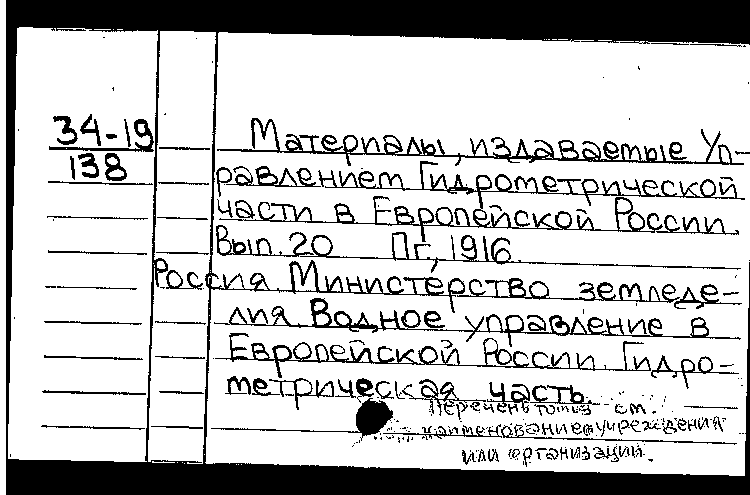 34-19
138
Материалы, издаваемые Уп-
равлением Гидрометрической
части в Европейской России.
Вып. 20 Пг., 1916.
Россия. Министерство земледе-
лия. Водное управление в
Европейской России. Гидро-
метрическая часть.
Перечень томов см.
наименование учреждения
или организации.